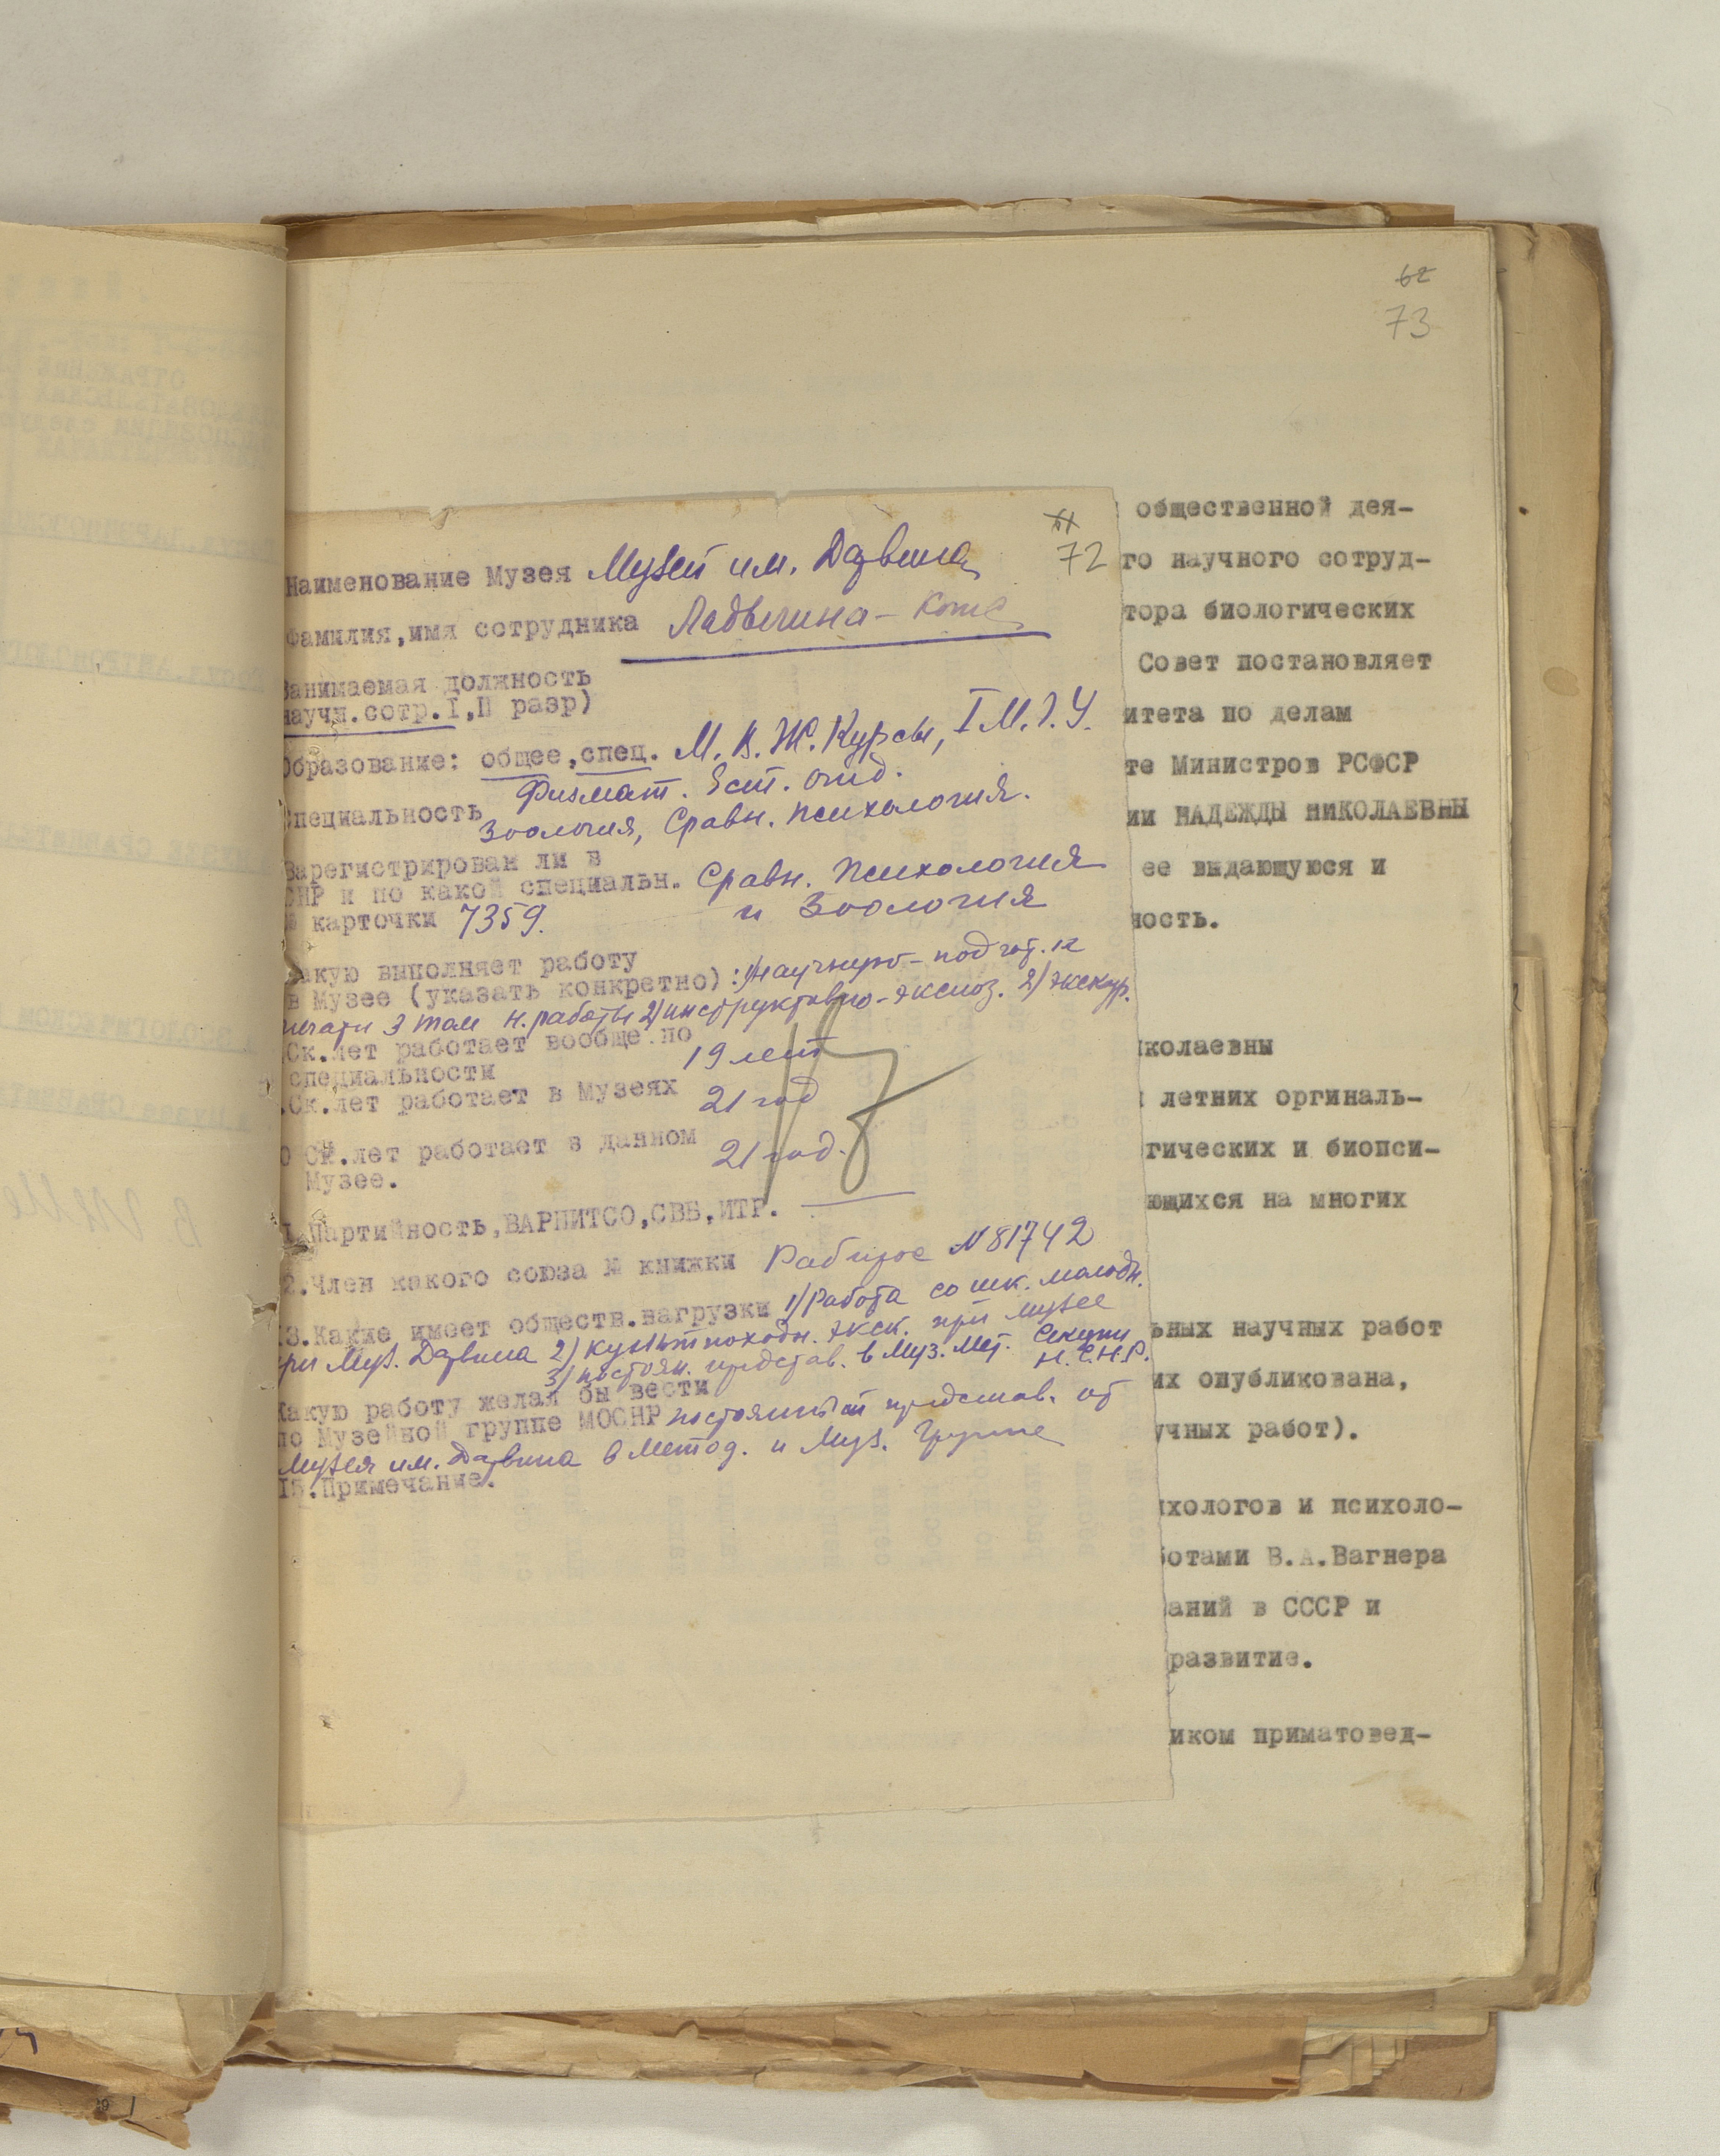 73
72
Наименование Музея Музей им. Дарвина
Фамилия,имя сотрудника Ладыгина-Котс
Занимаемая должность
научн.сотр.I,II разр)
Образование: общее,спец. М. В. Ж. Курсы, I М. Г. У.
Физмат. Ест. отд.
Специальность
Зоология, Сравн. психология.
Зарегистрирован ли в
СНР и по какой специальн. Сравн. Психология
№ карточки 7359. и Зоология
Какую выполняет работу
в Музее (указать конкретно): 1) научную - подгот. к
печати 3 том н. работы 2) инструктивно-экспоз. 2) экскур.
Ск.лет работает вообще по
специальности 19 лет
.Ск.лет работает в Музеях 21 год
0 Ск.лет работает в данном
Музее. 21 год.
1.Партийность,ВАРНИТСО,СВБ,ИТР. —
2.Член какого союза № книжки Рабпрос N 81742
13.Какие имеет обществ.нагрузки 1) Работа со шк. молодн.
при Муз. Дарвина 2) культпоходн. экск. при музее
3) постоян. представ. в Муз. Мет. Секции
Н. С. Н. Р.
Какую работу желал бы вести
по Музейной группе МОСНР постоянный представ. от
Музея им. Дарвина в Метод. и Муз. Группе
15.Примечание.
общественной дея-
го научного сотруд-
тора биологических
Совет постановляет
итета по делам
те Министров РСФСР
ии НАДЕЖДЫ НИКОЛАЕВНЫ
ее выдающуюся и
ность.
иколаевны
летних оргиналь-
гических и биопси-
ющихся на многих
ьных научных работ
их опубликована,
учных работ).
ихологов и психоло-
ботами В.А.Вагнера
аний в СССР и
развитие.
иком приматовед-